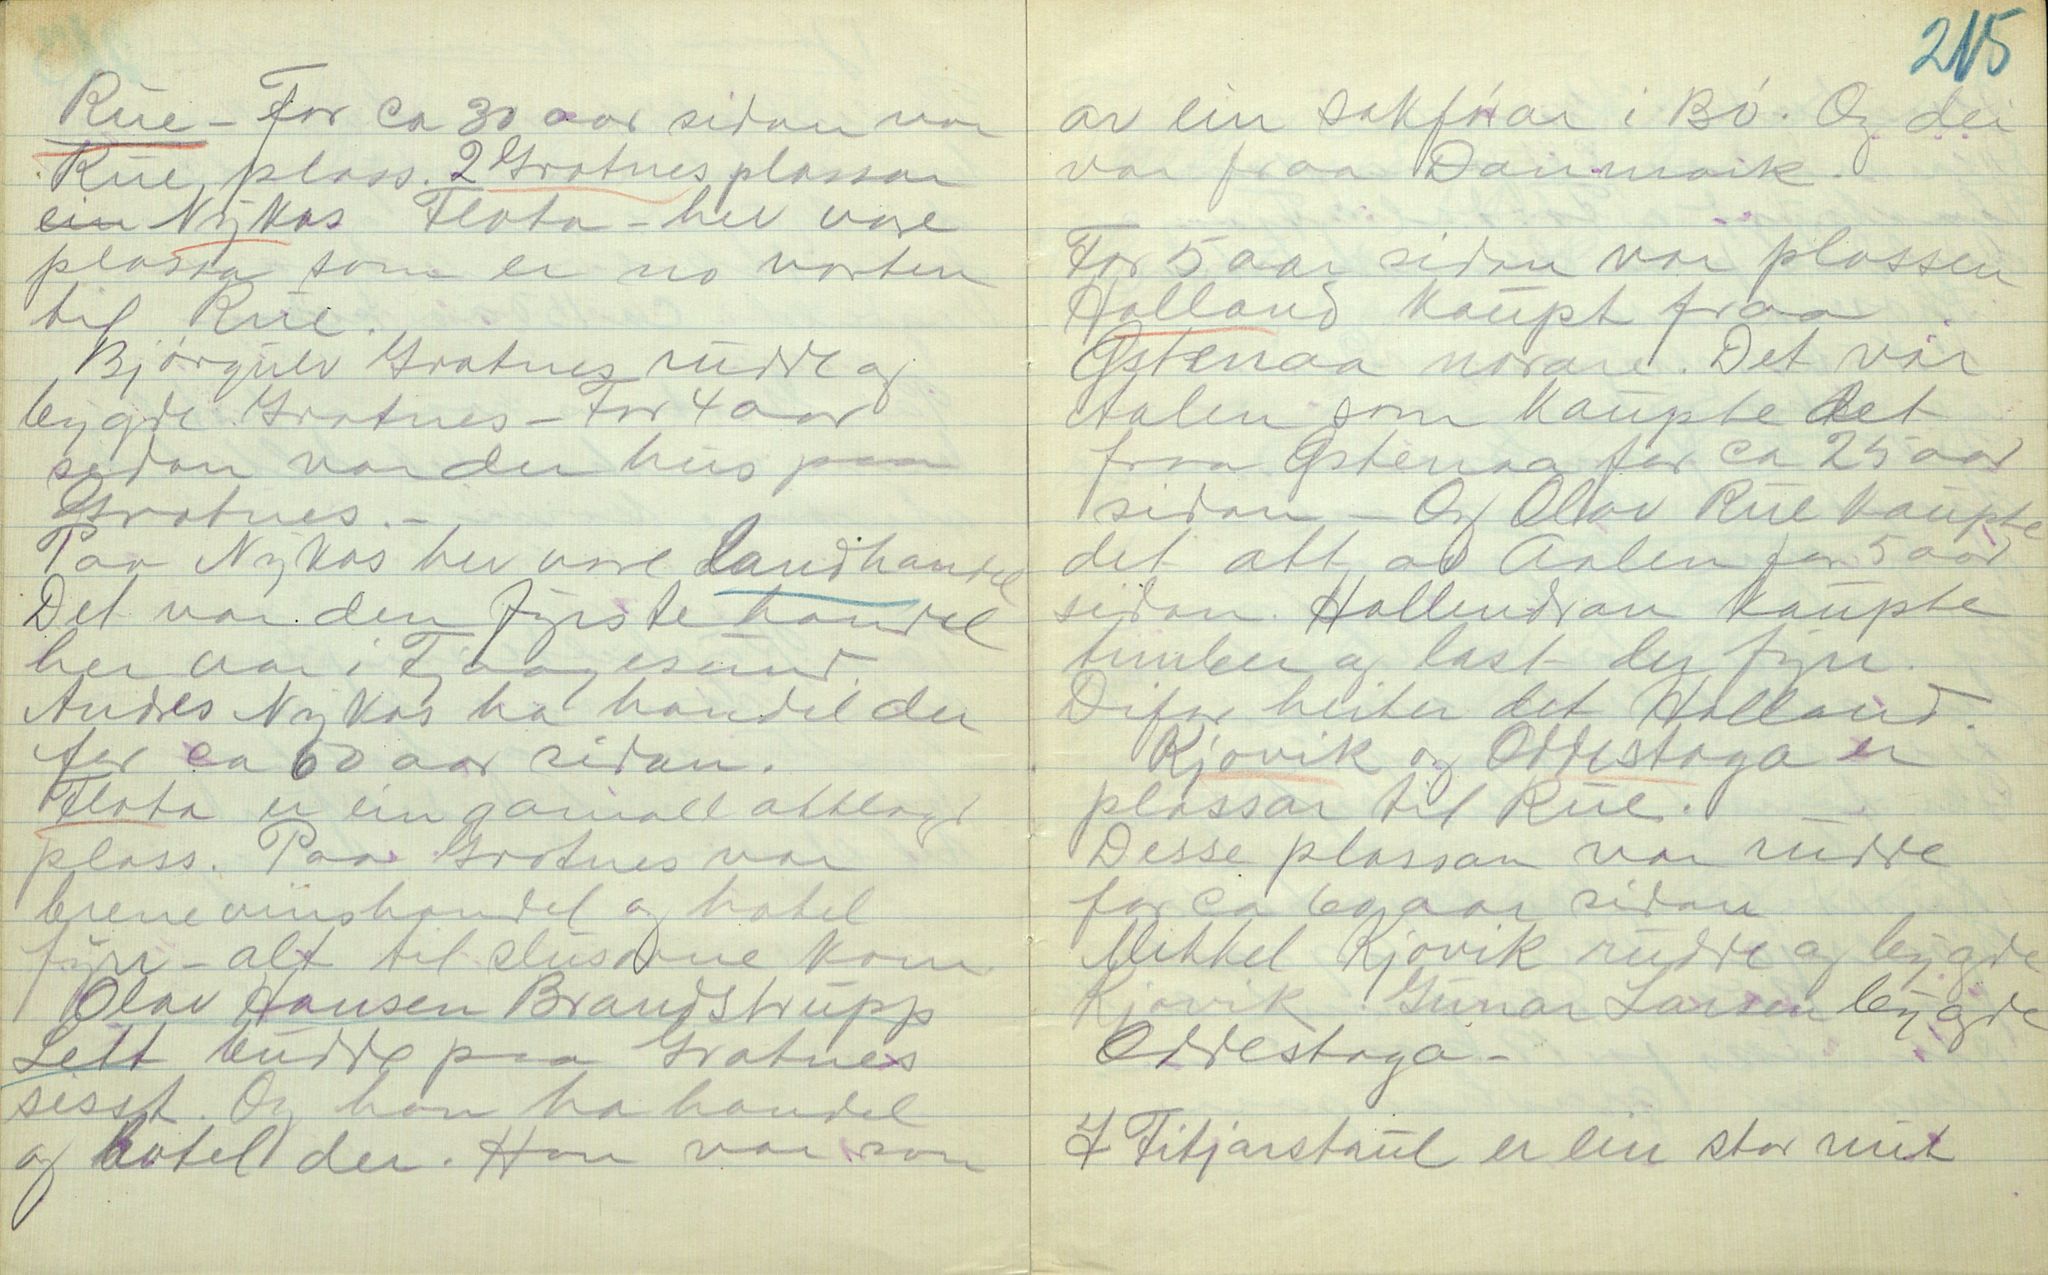 Rue - For ca 30 aar sidan var
Rue plass. 2 Grotnesplassar
ein Nykos Flota - hev vore
plassa som er no vorten
til Rue.
Bjørgulv Grotnes rudde og
bygde Grotnes - For 4 aar
sidan var der hus paa
Grotnes. -
Paa Nykos hev vore landhandel
Det var den fyrste handel
her var i Fjaagesund.
Andres Nykos ha handel der
for ca 60 aar sidan.
Flota er ein gamall attlagd
plass. Paa Grotnes var
brenevinshandel og hotel
fyrr - alt til slusarne kom
Olav Hansen Brandstrupp
Lett budde paa Grotnes
sisst. Og han ha handel
og hotel der. Han var son
215
av ein sakførar i Bø. Og dei
var fraa Danmark.
For 5 aar sidan var plassen
Holland kaupt fraa
Østenaa nordre. Det var
Aalen som kaupte det
fraa Østenaa for ca 25 aar
sidan - Og Olav Rue kaupte
det att av Aalen for 5 aar
sidan. Hollendran kaupte
timber og last der fyrr.
Difor heiter det Holland.
Kjovik og Oddestoga er
plassar til Rue.
Desse plassan var rudde
for ca 60 aar sidan
Mikkel Kjovik rudde og bygde
Kjovik. Gunar Larsen bygde
Oddestoga -
I Fitjarstaul er ein stor nut